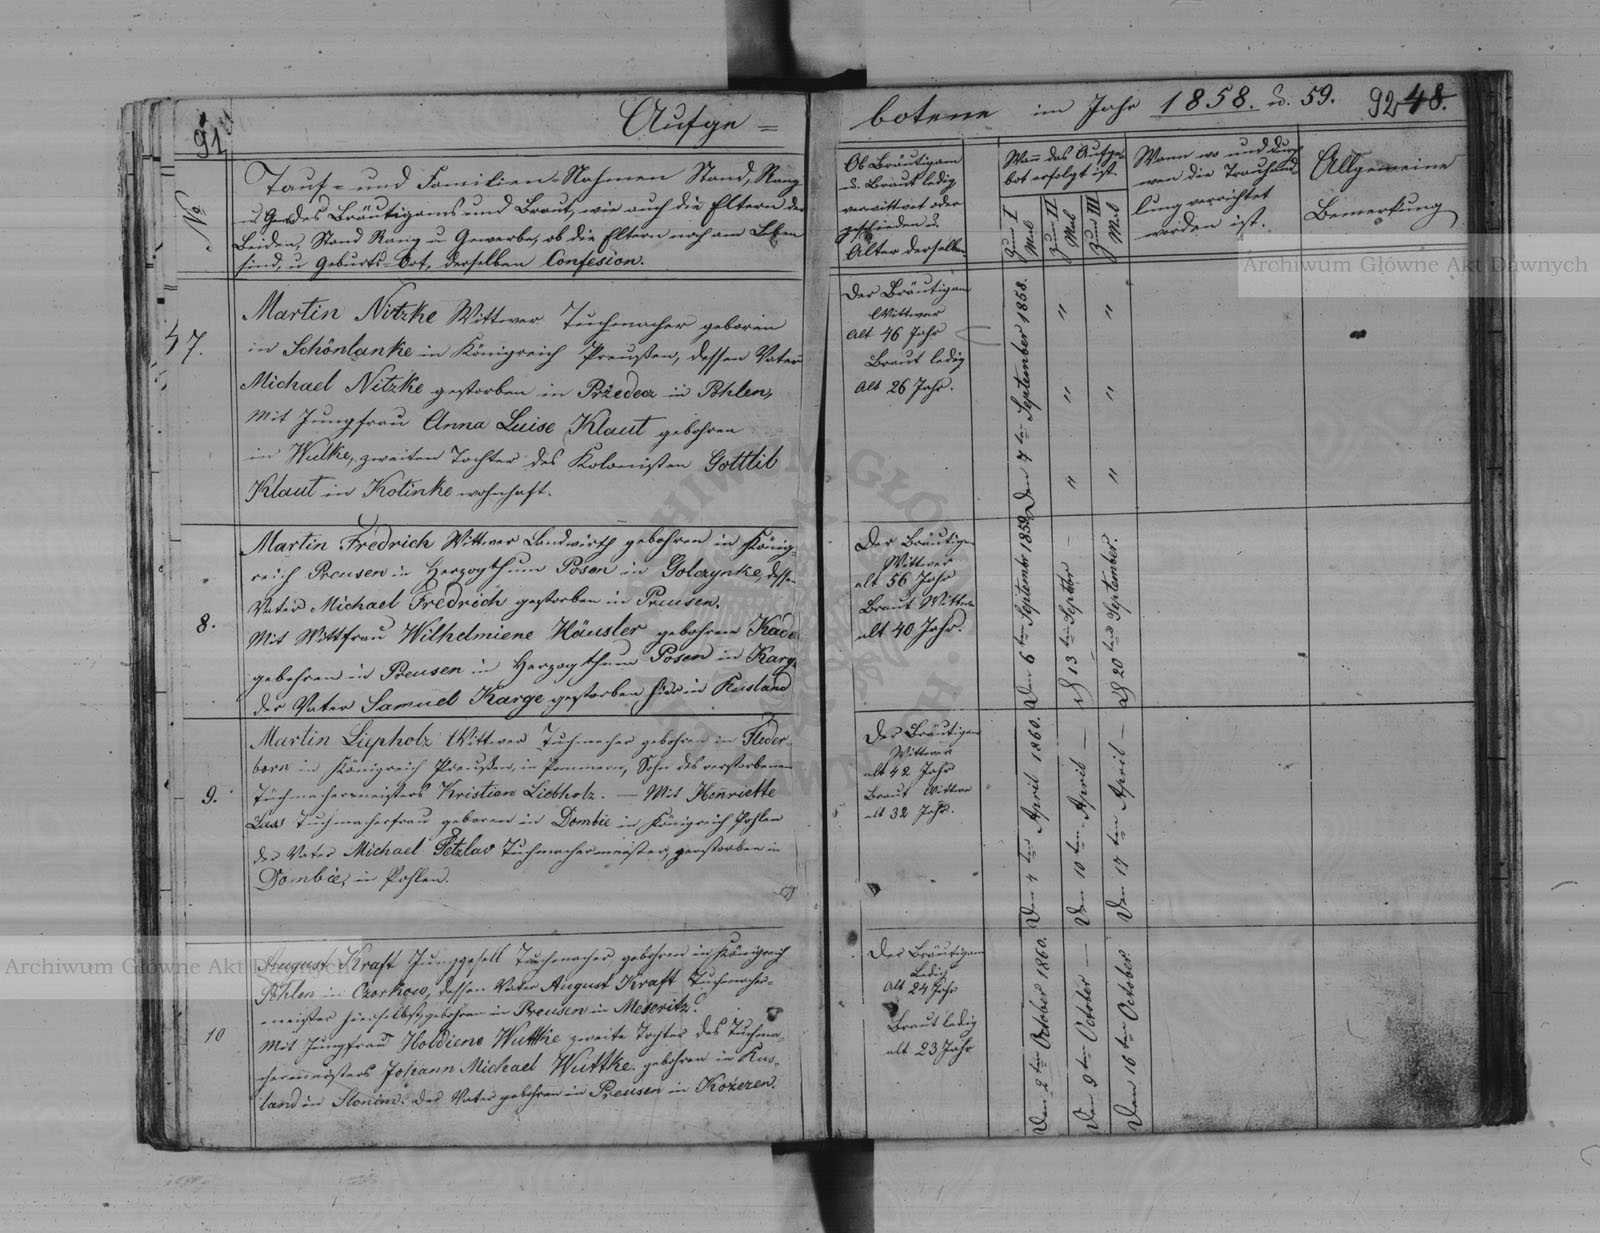 91
Aufge =
botene im Jahr 1858. u. 59.
92 48.
No
Tauf = und Familien-Nahmen Stand, Rang
u Gew des Bräutigams und Braut, wie auch die Eltern der
Beiden, Stand Rang u Gewerbe, ob die Eltern noch am Leben
sind, u Geburts-Ort, derselben Confesion.
Ob Bräutigam
u. Braut ledig
verwittwet oder
geschieden u.
Alter derselben.
Wann das Aufge-
bot erfolgt ist.
Zum I Mal
Zum II Mal
Zum III Mal
Wann wo und durch
wen die Trauhand-
lung verrichtet
worden ist.
Allgemeine
Bemerkung
7.
Martin Nitzke Wittwer Tuchmacher geboren
in Schönlanke in Königreich Preußen, dessen Vater
Michael Nitzke gestorben in Przedecz in Pohlen,
Mit Jungfrau Anna Luise Klaut gebohren
in Wulke, zweiten Tochter des Kolonisten Gottlib
Klaut in Kotinke wohnhaft.
Der Bräutigam
Wittwer
alt 46 Jahr
Braut ledig
alt 26 Jahr.
Den 7ten September 1858.
8.
Martin Fredrich Wittwer Landwirth gebohren in König-
reich Preusen in Herzogthum Posen in Golczynke, dessen
Vater Michael Fredrich gestorben in Preusen.
Mit Wittfrau Wilhelmiene Häusler gebohren
gebohren in Preusen in Herzogthum Posen in Karge
der Vater Samuel Karge gestorben hier in Rusland
Der Bräutigam
Wittwer
alt 56 Jahr
Braut Wittwe
alt 40 Jahr.
Den 6ten September 1859
d 13ten Septbr —
d 20ten September.
9.
Martin Lüpholz Wittwer Tuchmacher gebohren in Fleder-
born in Königreich Preußen, in Pommern, Sohn des verstorbenen
Tuchmachermeisters Kristian Liebholz. — Mit Henriette
Laas Tuchmacherfrau geboren in Dombie in Königreich Pohlen
der Vater Michael Petzlav Tuchmachermeister, gestorben in
Dombie, in Pohlen.
Der Bräutigam
Wittwer
alt 42 Jahr
Braut Wittwe
alt 32 Jahr.
Den 4ten April 1860.
Den 10ten April —
Den 17ten April —
10
August Kraft Junggesell Tuchmacher gebohren in Königreich
Pohlen in Ozorkow, dessen Vater August Kraft Tuchmacher-
meister hierselbst, gebohren in Preusen in Meseritz.
Mit Jungfrau Holdiene Wuttke zweite Tochter des Tuchma-
chermeisters Johann Michael Wuttke. gebohren in Rus-
land in Slonim. Der Vater gebohren in Preusen in Kozezen.
Der Bräutigam
Ledig
alt 24 Jahr
Braut ledig
alt 23 Jahr
Den 2ten October 1860.
Den 9ten October —
Den 16ten October
Archiwum Główne Akt Dawnych
Archiwum Główne Akt Dawnych